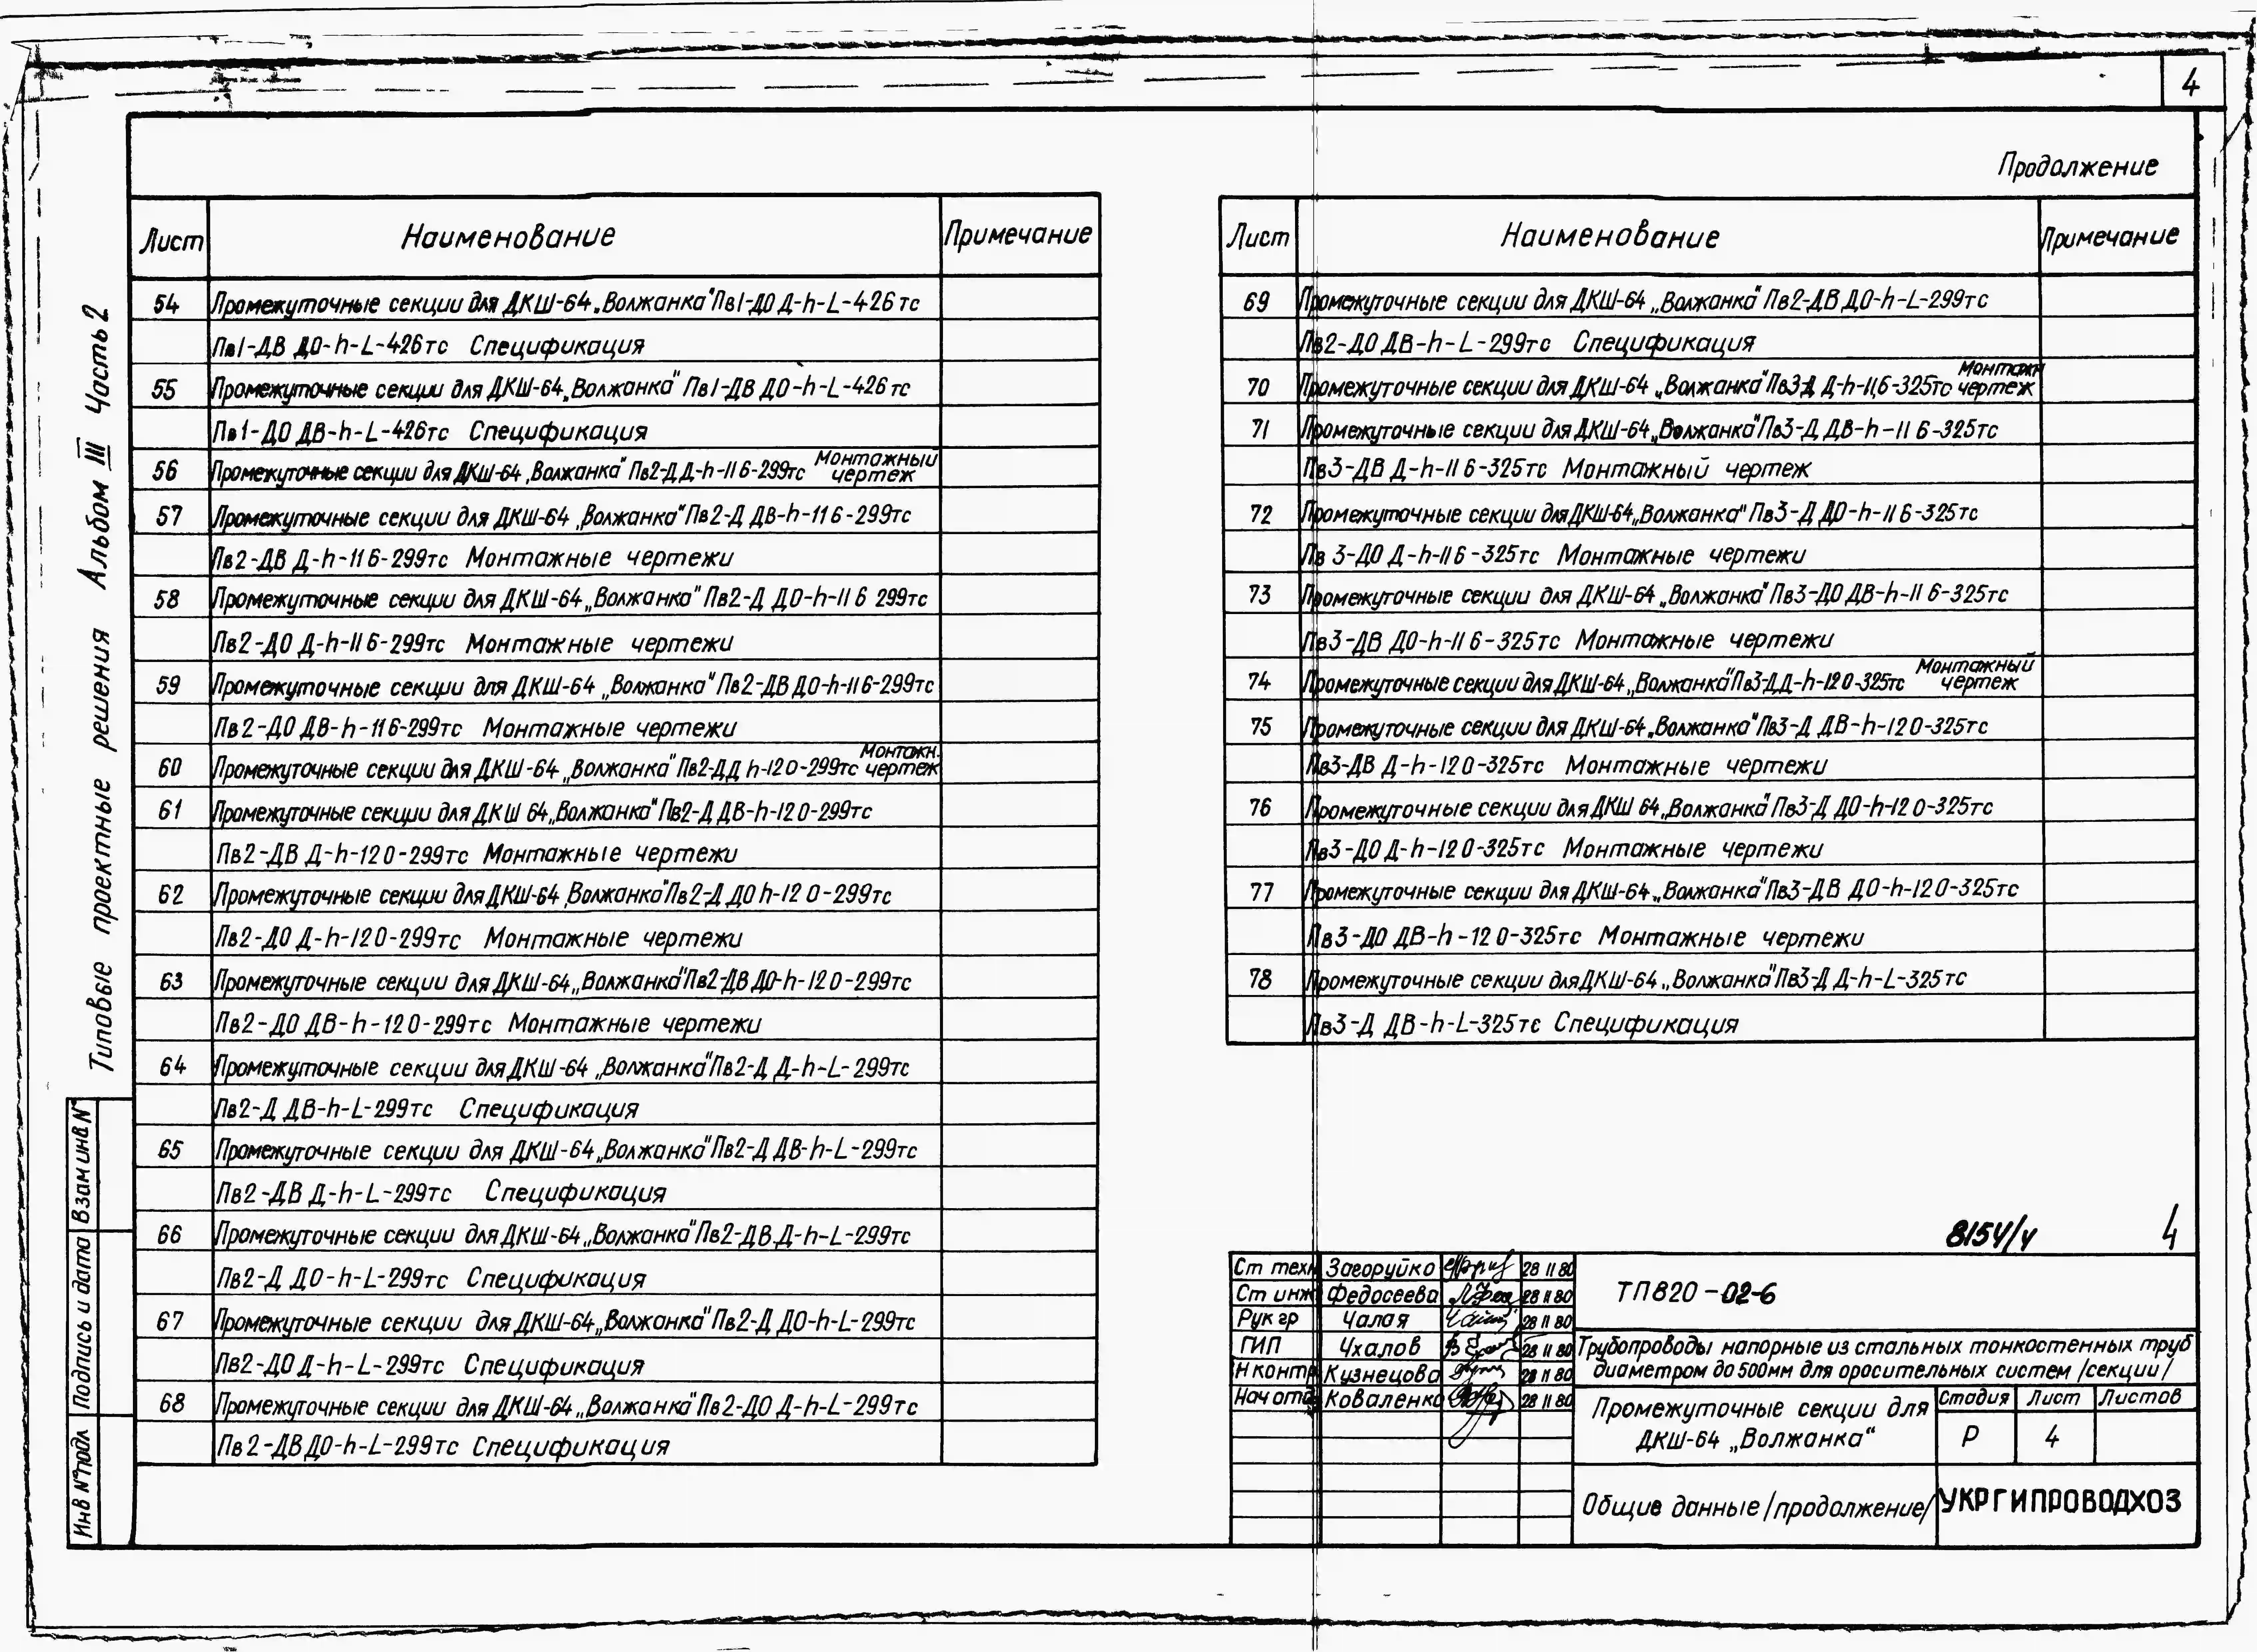 4
Продолжение
Типовые проектные решения Альбом III Часть 2
Лист Наименование Примечание
54 Промежуточные секции для ДКШ-64 „Волжанка" Пв1-ДО Д-h-L-426тс
Пв1-ДВ ДО-h-L-426тс Спецификация
55 Промежуточные секции для ДКШ-64 „Волжанка" Пв1-ДВ ДО-h-L-426тс
Пв1-ДО ДВ-h-L-426тс Спецификация
56 Промежуточные секции для ДКШ-64 „Волжанка" Пв2-Д Д-h-11 6-299тс Монтажный чертеж
57 Промежуточные секции для ДКШ-64 „Волжанка" Пв2-Д ДВ-h-11 6-299тс
Пв2-ДВ Д-h-11 6-299тс Монтажные чертежи
58 Промежуточные секции для ДКШ-64 „Волжанка" Пв2-Д ДО-h-11 6 299тс
Пв2-ДО Д-h-11 6-299тс Монтажные чертежи
59 Промежуточные секции для ДКШ-64 „Волжанка" Пв2-ДВ ДО-h-11 6-299тс
Пв2-ДО ДВ-h-11 6-299тс Монтажные чертежи
60 Промежуточные секции для ДКШ-64 „Волжанка" Пв2-Д Д h-12 0-299тс Монтажн. чертеж
61 Промежуточные секции для ДКШ 64 „Волжанка" Пв2-Д ДВ-h-12 0-299тс
Пв2-ДВ Д-h-12 0-299тс Монтажные чертежи
62 Промежуточные секции для ДКШ-64 „Волжанка" Пв2-Д ДО h-12 0-299тс
Пв2-ДО Д-h-12 0-299тс Монтажные чертежи
63 Промежуточные секции для ДКШ-64 „Волжанка" Пв2-ДВ ДО-h-12 0-299тс
Пв2-ДО ДВ-h-12 0-299тс Монтажные чертежи
64 Промежуточные секции для ДКШ-64 „Волжанка" Пв2-Д Д-h-L-299тс
Пв2-Д ДВ-h-L-299тс Спецификация
65 Промежуточные секции для ДКШ-64 „Волжанка" Пв2-Д ДВ-h-L-299тс
Пв2-ДВ Д-h-L-299тс Спецификация
66 Промежуточные секции для ДКШ-64 „Волжанка" Пв2-ДВ Д-h-L-299тс
Пв2-Д ДО-h-L-299тс Спецификация
67 Промежуточные секции для ДКШ-64 „Волжанка" Пв2-Д ДО-h-L-299тс
Пв2-ДО Д-h-L-299тс Спецификация
68 Промежуточные секции для ДКШ-64 „Волжанка" Пв2-ДО Д-h-L-299тс
Пв2-ДВ ДО-h-L-299тс Спецификация
Лист Наименование Примечание
69 Промежуточные секции для ДКШ-64 „Волжанка" Пв2-ДВ ДО-h-L-299тс
Пв2-ДО ДВ-h-L-299тс Спецификация
70 Промежуточные секции для ДКШ-64 „Волжанка" Пв3-Д Д-h-11,6-325тс Монтажн чертеж
71 Промежуточные секции для ДКШ-64 „Волжанка" Пв3-Д ДВ-h-11 6-325тс
Пв3-ДВ Д-h-11 6-325тс Монтажный чертеж
72 Промежуточные секции для ДКШ-64 „Волжанка" Пв3-Д ДО-h-11 6-325тс
Пв 3-ДО Д-h-11 6-325тс Монтажные чертежи
73 Промежуточные секции для ДКШ-64 „Волжанка" Пв3-ДО ДВ-h-11 6-325тс
Пв3-ДВ ДО-h-11 6-325тс Монтажные чертежи
74 Промежуточные секции для ДКШ-64 „Волжанка" Пв3-Д Д-h-12 0-325тс Монтажный чертеж
75 Промежуточные секции для ДКШ-64 „Волжанка" Пв3-Д ДВ-h-12 0-325тс
Пв3-ДВ Д-h-12 0-325тс Монтажные чертежи
76 Промежуточные секции для ДКШ 64 „Волжанка" Пв3-Д ДО-h-12 0-325тс
Пв3-ДО Д-h-12 0-325тс Монтажные чертежи
77 Промежуточные секции для ДКШ-64 „Волжанка" Пв3-ДВ ДО-h-12 0-325тс
Пв3-ДО ДВ-h-12 0-325тс Монтажные чертежи
78 Промежуточные секции для ДКШ-64 „Волжанка" Пв3-Д Д-h-L-325тс
Пв3-Д ДВ-h-L-325тс Спецификация
8154/4 4
Ст техн Загоруйко 28 11 80
Ст инж Федосеева 28 11 80
Рук гр Чалая 28 11 80
ГИП Чхалов 28 11 80
Н контр Кузнецова 28 11 80
Нач отд Коваленко 28 11 80
ТП820-02-6
Трубопроводы напорные из стальных тонкостенных труб
диаметром до 500мм для оросительных систем /секции/
Промежуточные секции для
ДКШ-64 „Волжанка"
Стадия Лист Листов
Р 4
Общие данные /продолжение/
УКРГИПРОВОДХОЗ
Взам инв N
Подпись и дата
Инв N подл